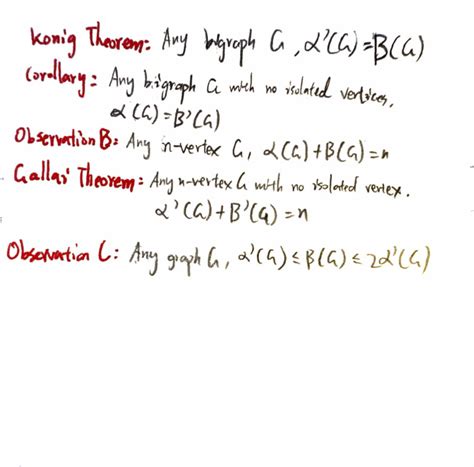 Konig Theorem: Any bigraph G, α'(G)=β(G)
Corollary: Any bigraph G with no isolated vertices,
α(G)=β'(G)
Observation B: Any n-vertex G, α(G)+β(G)=n
Gallai Theorem: Any n-vertex G with no isolated vertex.
α'(G)+β'(G)=n
Observation C: Any graph G, α'(G)≤β(G)≤2α'(G)